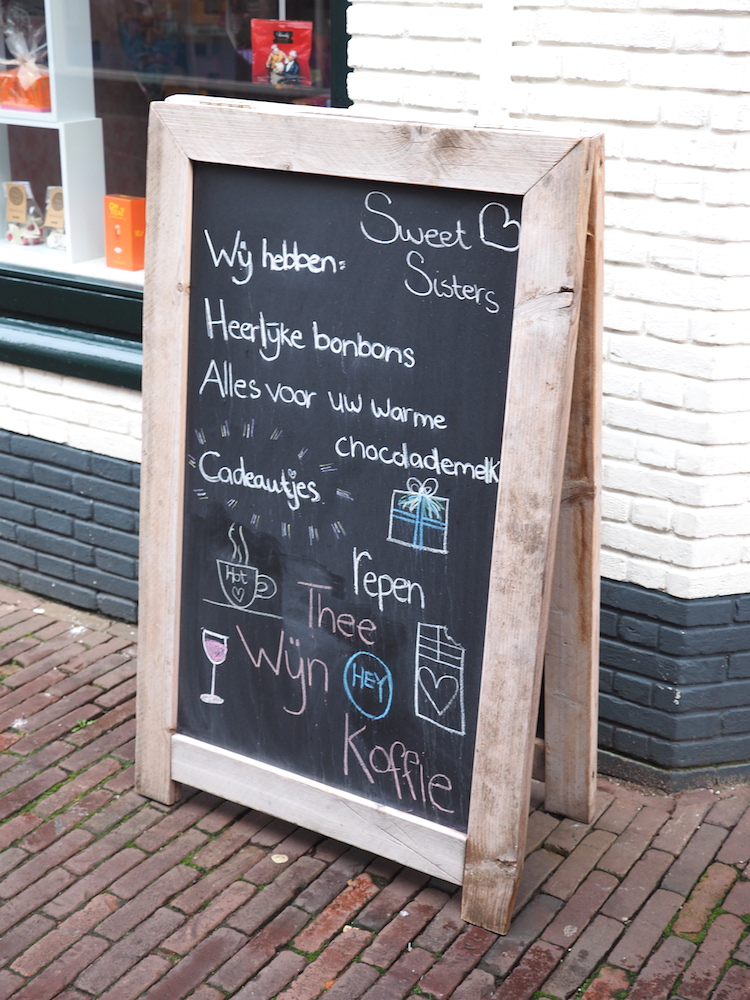 Sweet
Sisters
Wij hebben:
Heerlijke bonbons
Alles voor uw warme
chocolademelk
Cadeautjes
Hot
repen
Thee
Wijn
HEY
Koffie